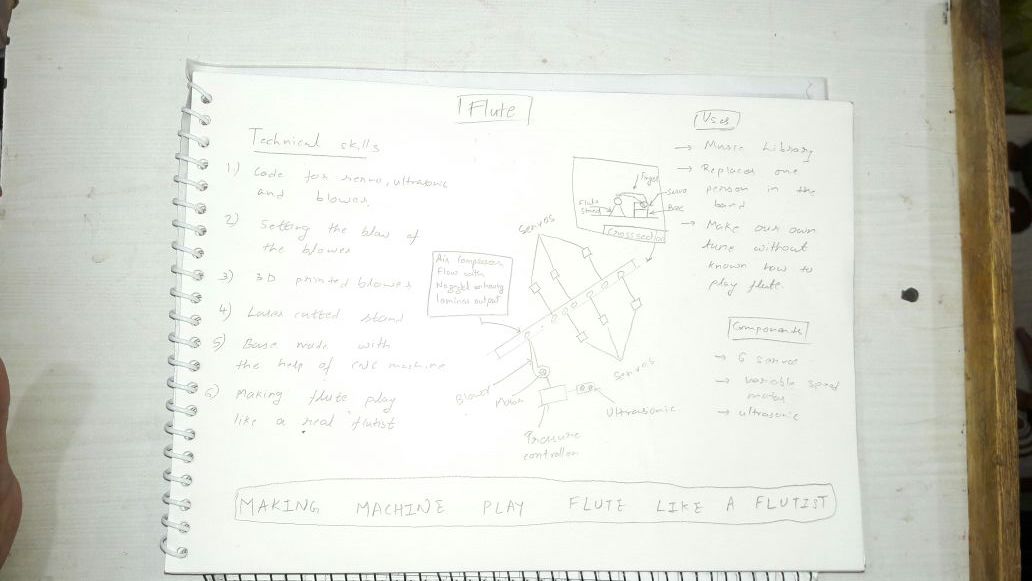 Flute
Technical skills
1) Code for servo, ultrasonic
and blower.
2) Setting the blow of
the blower
3) 3D printed blower
4) Laser cutted stand
5) Base made with
the help of CNC machine
6) Making flute play
like a real flutist
Air Compressor
Flow with
output
Servos
Finger
Servo
Flute
stand
Base
Crosssection
Servos
Blower
Motor
Ultrasonic
Pressure
controller
Uses
→ Music Library
→ Replaces one
person in the
band
→ Make our own
tune without
known how to
play flute.
Components
→ 6 servo
→ variable speed
motor
→ ultrasonic
MAKING MACHINE PLAY FLUTE LIKE A FLUTIST